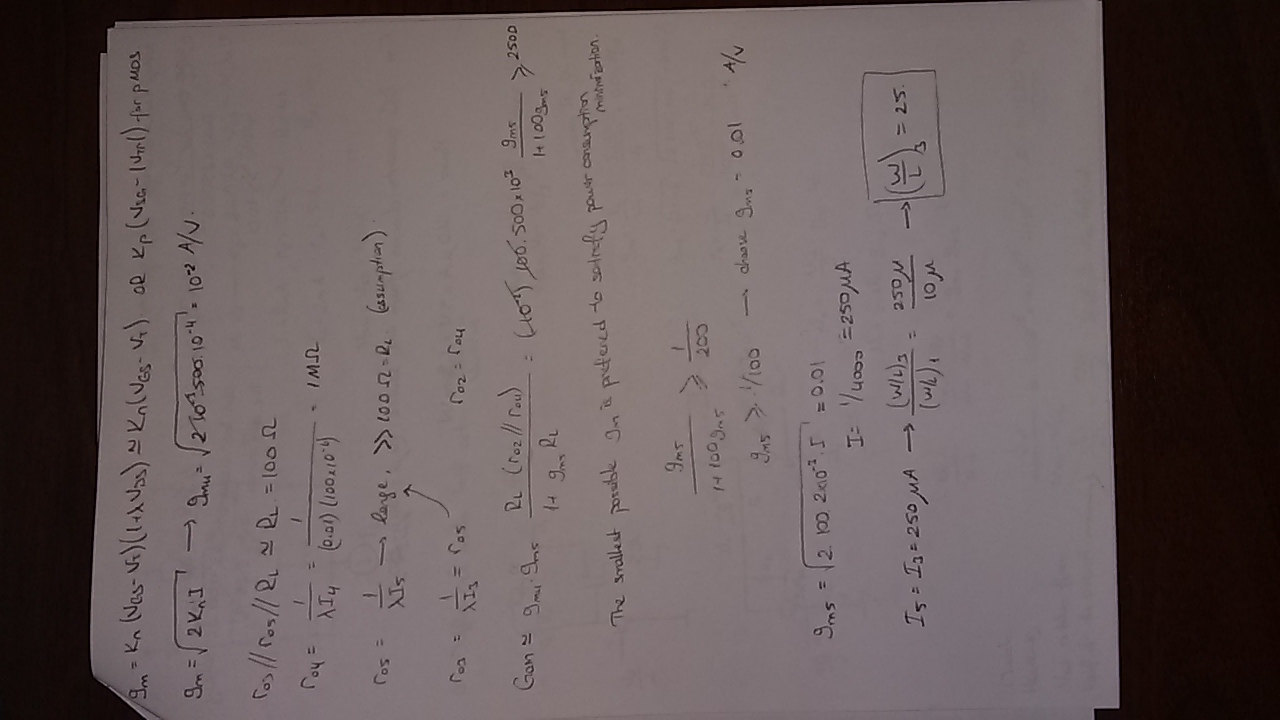 gm = Kn (VGS - Vt)(1+λVDS) ≈ Kn(VGS - Vt) OR Kp (VSG - |Vtp|) for pMOS
gm = √2KnI → gm4 = √2·10²·500·10⁻⁴ = 10⁻² A/V.
ro3 // ro5 // RL ≈ RL = 100Ω
ro4 = 1/λI4 = 1/(0.01)(100x10⁻⁶) = 1MΩ
ro5 = 1/λI5 → large, >> 100Ω = RL (assumption)
ro3 = 1/λI3 = ro5 ro2 = ro4
Gain ≈ gm4 · gm5 RL (ro2 // ro4) / 1 + gm5 RL = (10⁻²) 100·500x10³ gm5 / 1+100gm5 ≥ 2500
The smallest possible gm is preferred to satisfy power consumption minimization.
gm5 / 1+100gm5 ≥ 1/200
gm5 ≥ 1/100 → choose gm5 = 0.01 A/V
gm5 = √2 100 2x10⁻³·I = 0.01
I = 1/4000 = 250μA
I5 = I3 = 250μA → (W/L)3 / (W/L)1 = 250μ / 10μ → (W/L)3 = 25.